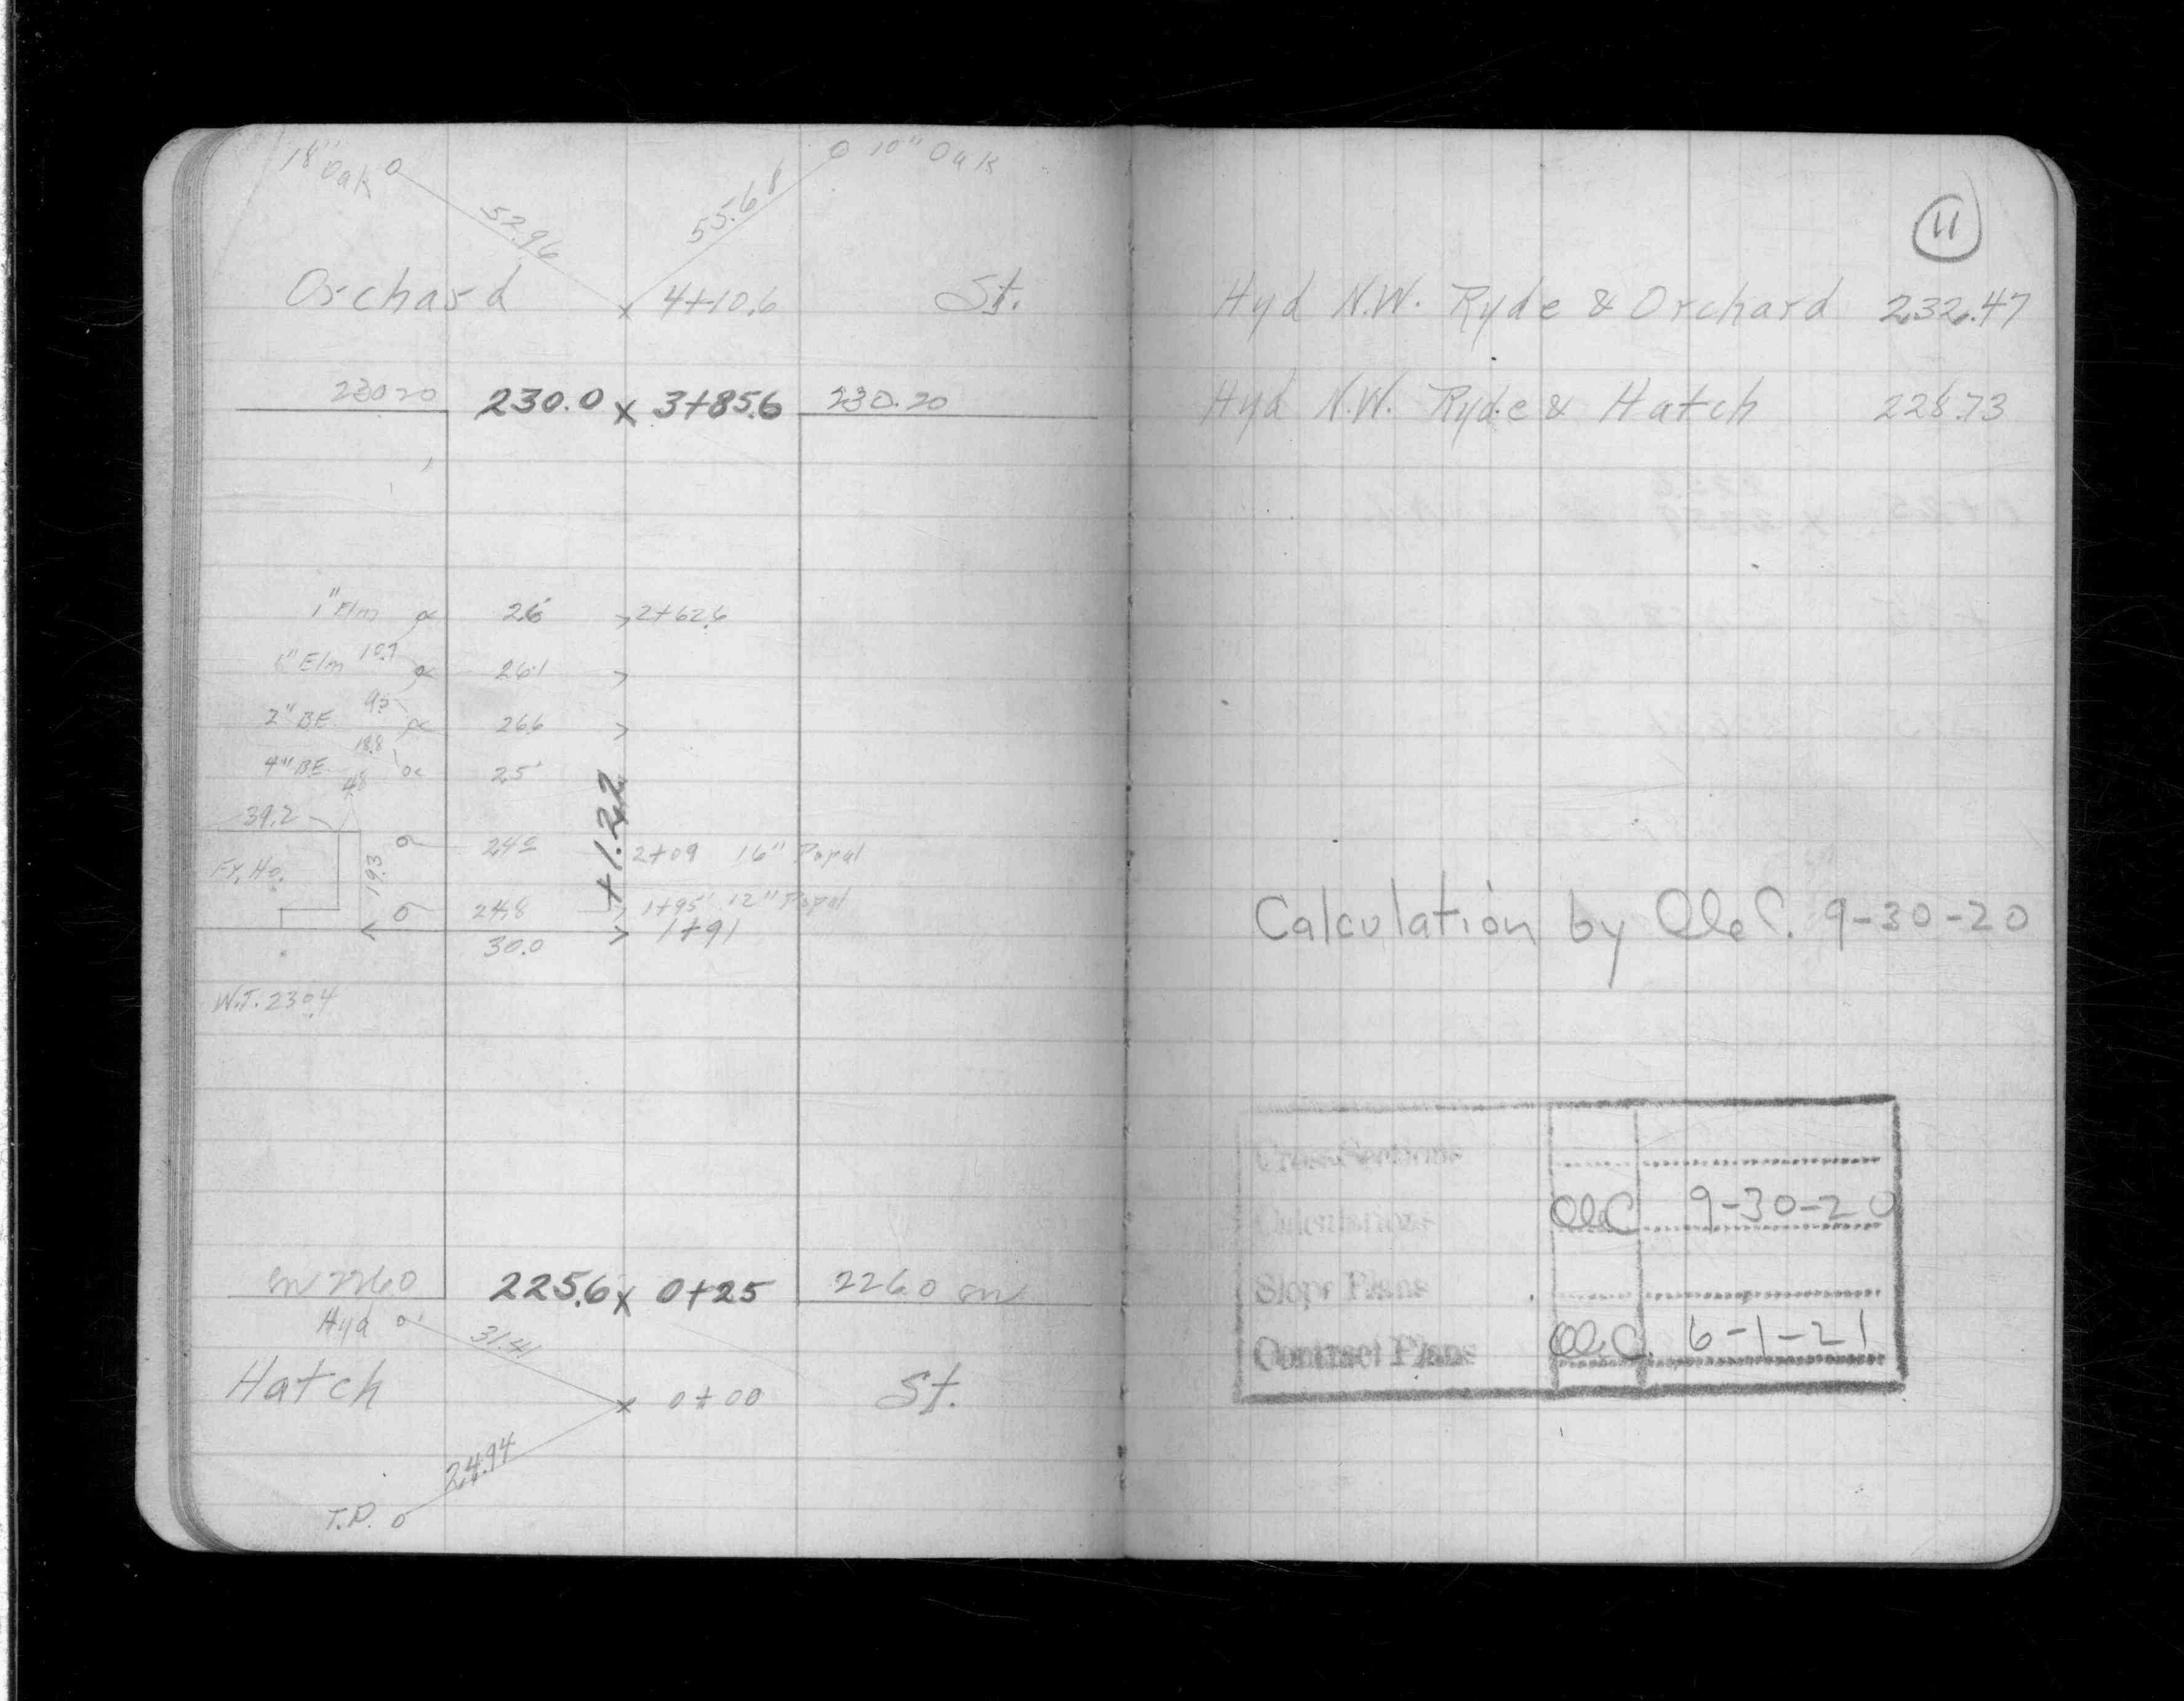 18" Oak
10" Oak
52.96
55.68
Orchard
4+10.6
St.
230.20
230.0 x 3+85.6
230.20
1" Elm
26'
2+62.6
1" Elm
10.7
26.1
2" BE
9.5
26.6
4" BE
18.8
25'
4.8
+1.22
39.2
2+09 16" Popal
Fr. Ho.
19.3
24.8
1+95' 12" Popal
30.0
1+91
W.T. 230.4
sw 226.0
225.6 x 0+25
226.0 sw
Hyd
31.41
Hatch
x 0+00
St.
24.94
T.P.
11
Hyd N.W. Ryde & Orchard 232.47
Hyd N.W. Ryde & Hatch 228.73
Calculation by OleC. 9-30-20
Cross Sections
Calculations OleC 9-30-20
Slope Plans
Contract Plans OleC. 6-1-21